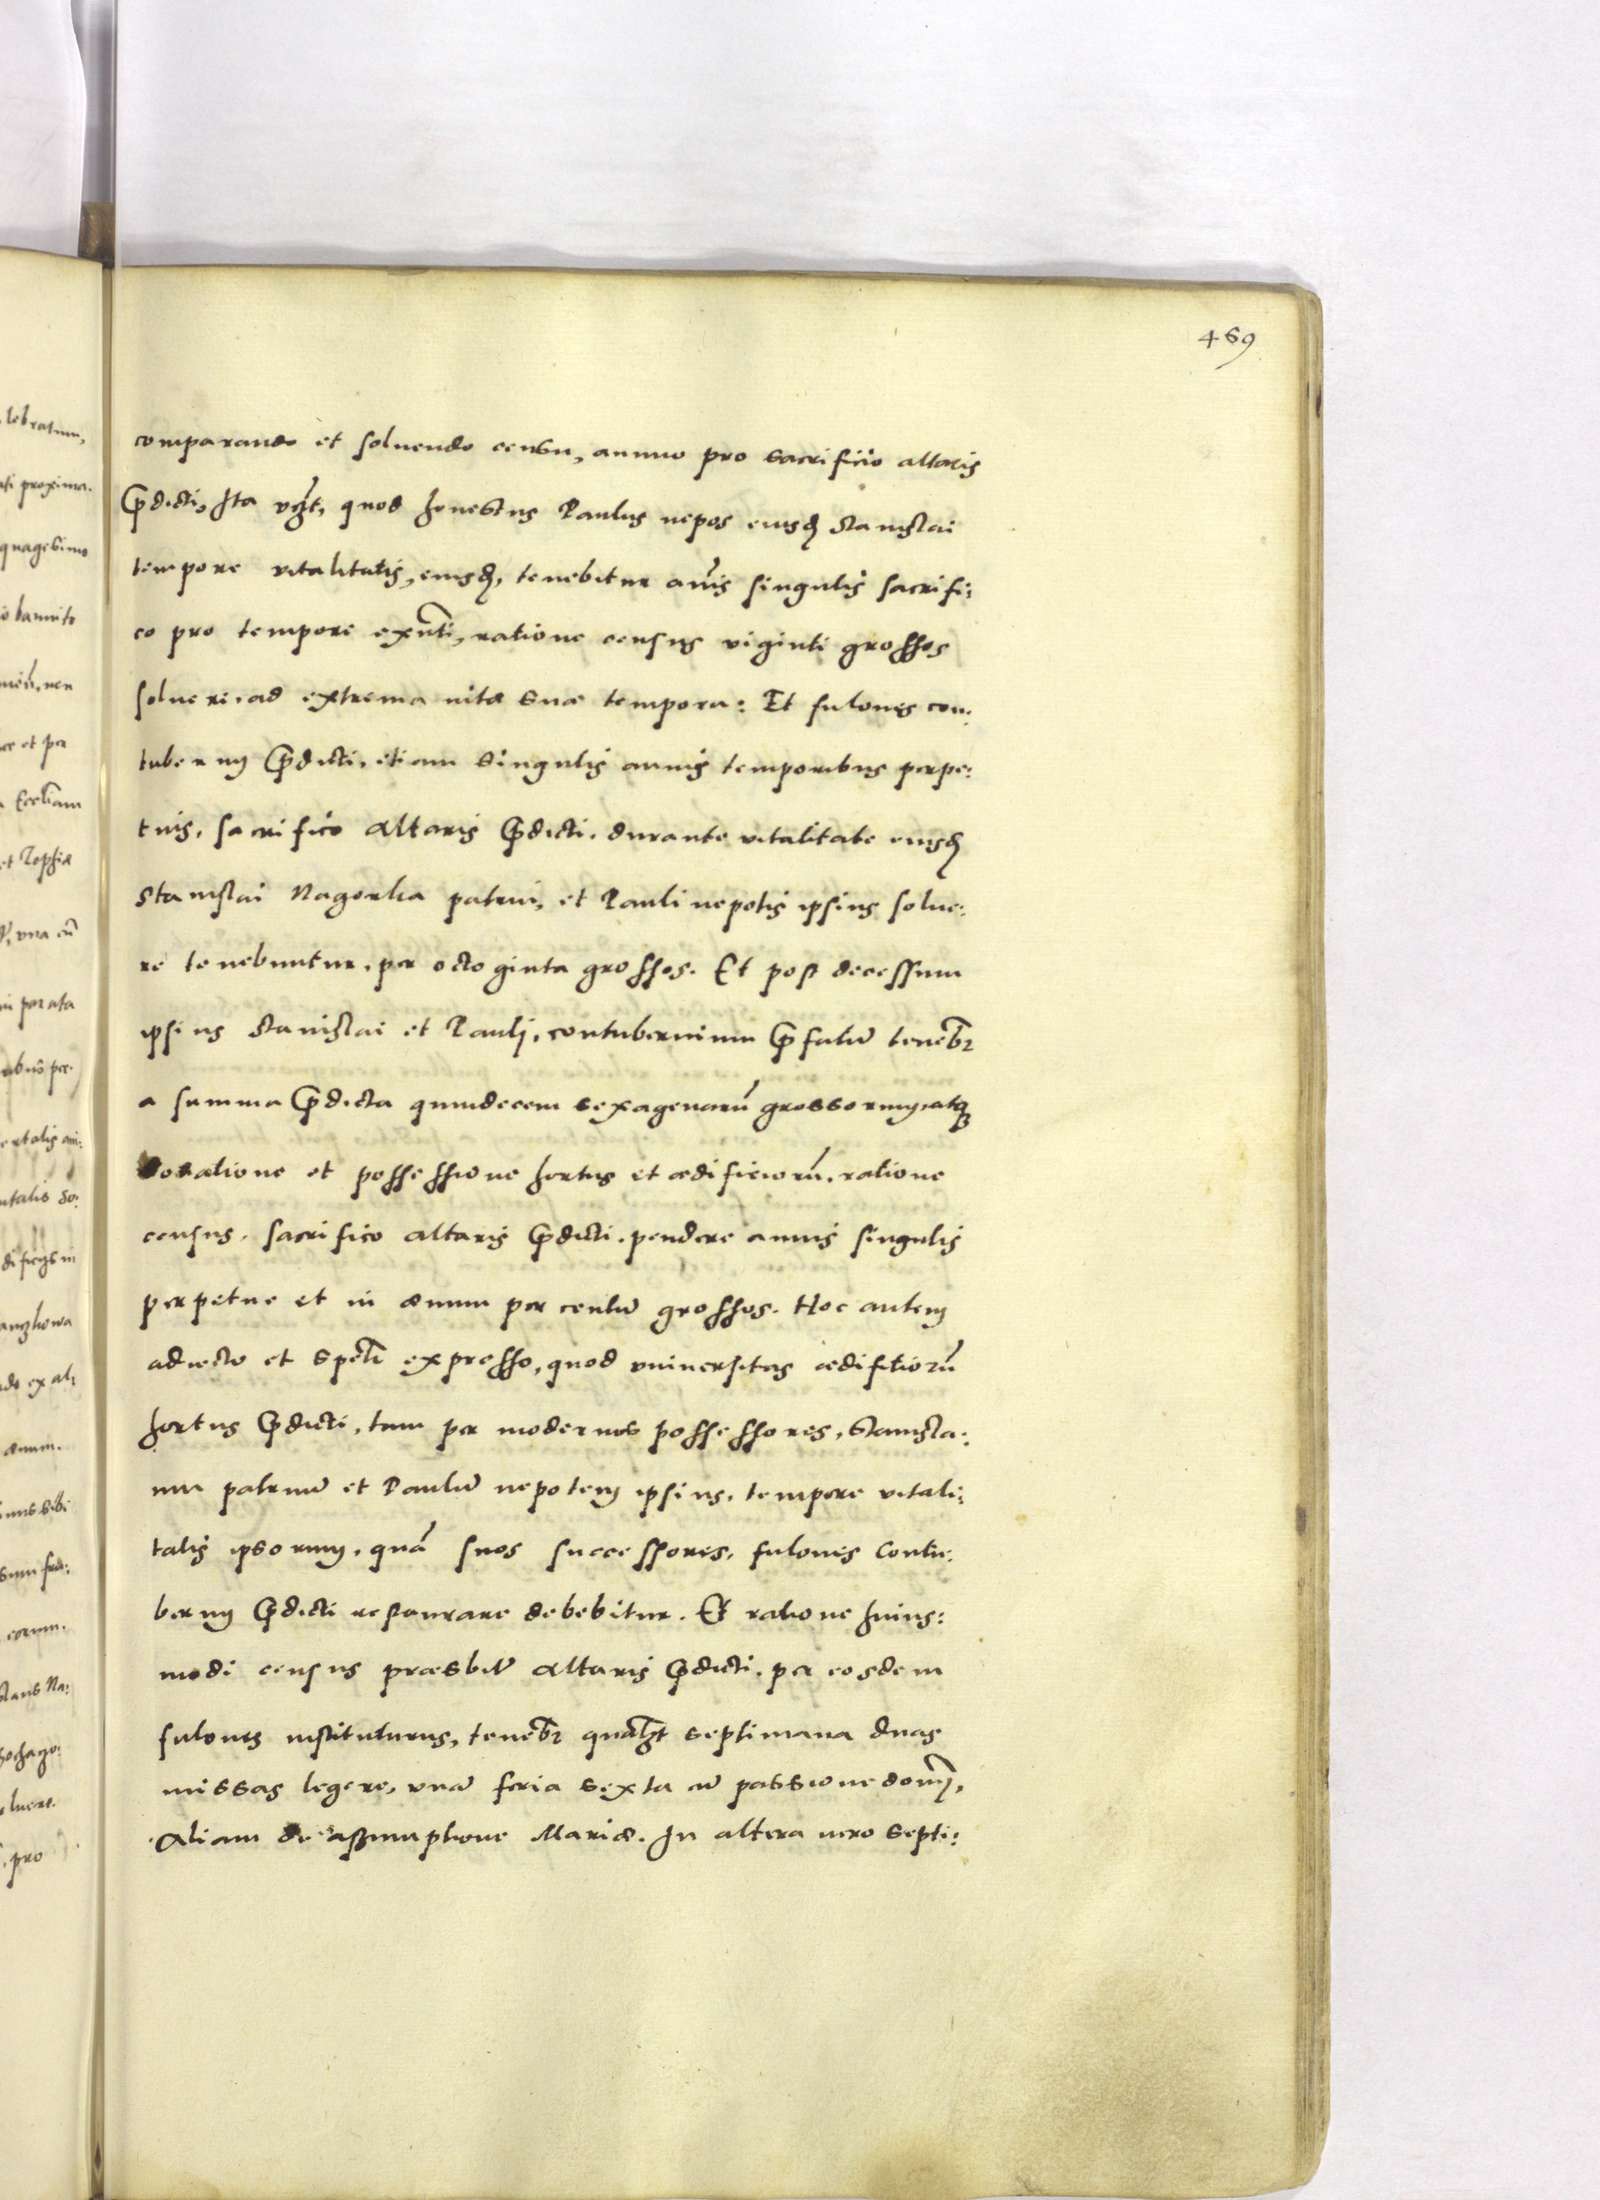 469
comparando et soluendo censu, annuo pro sacrificio altaris
p̄dicti, Ita vcz̄t, quod honestus Paulus nepos eiusd̄ Stanislai
tempore vitalitatis, eiusd̄, tenebitur an̄is singulis sacrifi:
co pro tempore exn̄ti, ratione census viginti grossos
soluere, ad extrema uitæ suæ tempora: Et fulones con:
tubernij p̄dicti, etiam singulis annis temporibus perpe:
tuis, sacrifico Altaris p̄dicti, durante vitalitate eiusd̄
Stanislai Nagorka patrui, et Pauli nepotis ipsius solue:
re tenebuntur, per octoginta grossos. Et post decessum
ipsius Stanislai et Pauli, contubernium p̄fatū teneb̄r
a summa p̄dicta quindecem sexagenarū grossorum, atq̨
donatione et possessione hortus et ædificiorū, ratione
census, sacrifico altaris p̄dicti, pendere annis singulis
perpetue et in æuum per centū grossos. Hoc autem
adiecto et spētr expresso, quod vniuersitas ædifitiorū
hortus p̄dicti, tam per modernos possessores, Stanisla:
um patruū et Paulū nepotem ipsius, tempore vitali:
tatis ipsorum, quā suos successores, fulones Contu:
bernij p̄dicti restaurare debebitur. Et ratione huius:
modi census præsbitr̄ Altaris p̄dicti, per eosdem
fulones instituturus, teneb̄r qualz̄t septimana duas
missas legere, vnā feria sexta cū passione domī,
Aliam de assumptione Mariæ. In altera uero septi:
lebratum,
ati proxima.
quagesimo
et per
Eccl̄iam
et Sophiæ
vna cū
parata
æuum.
eorum.
pro